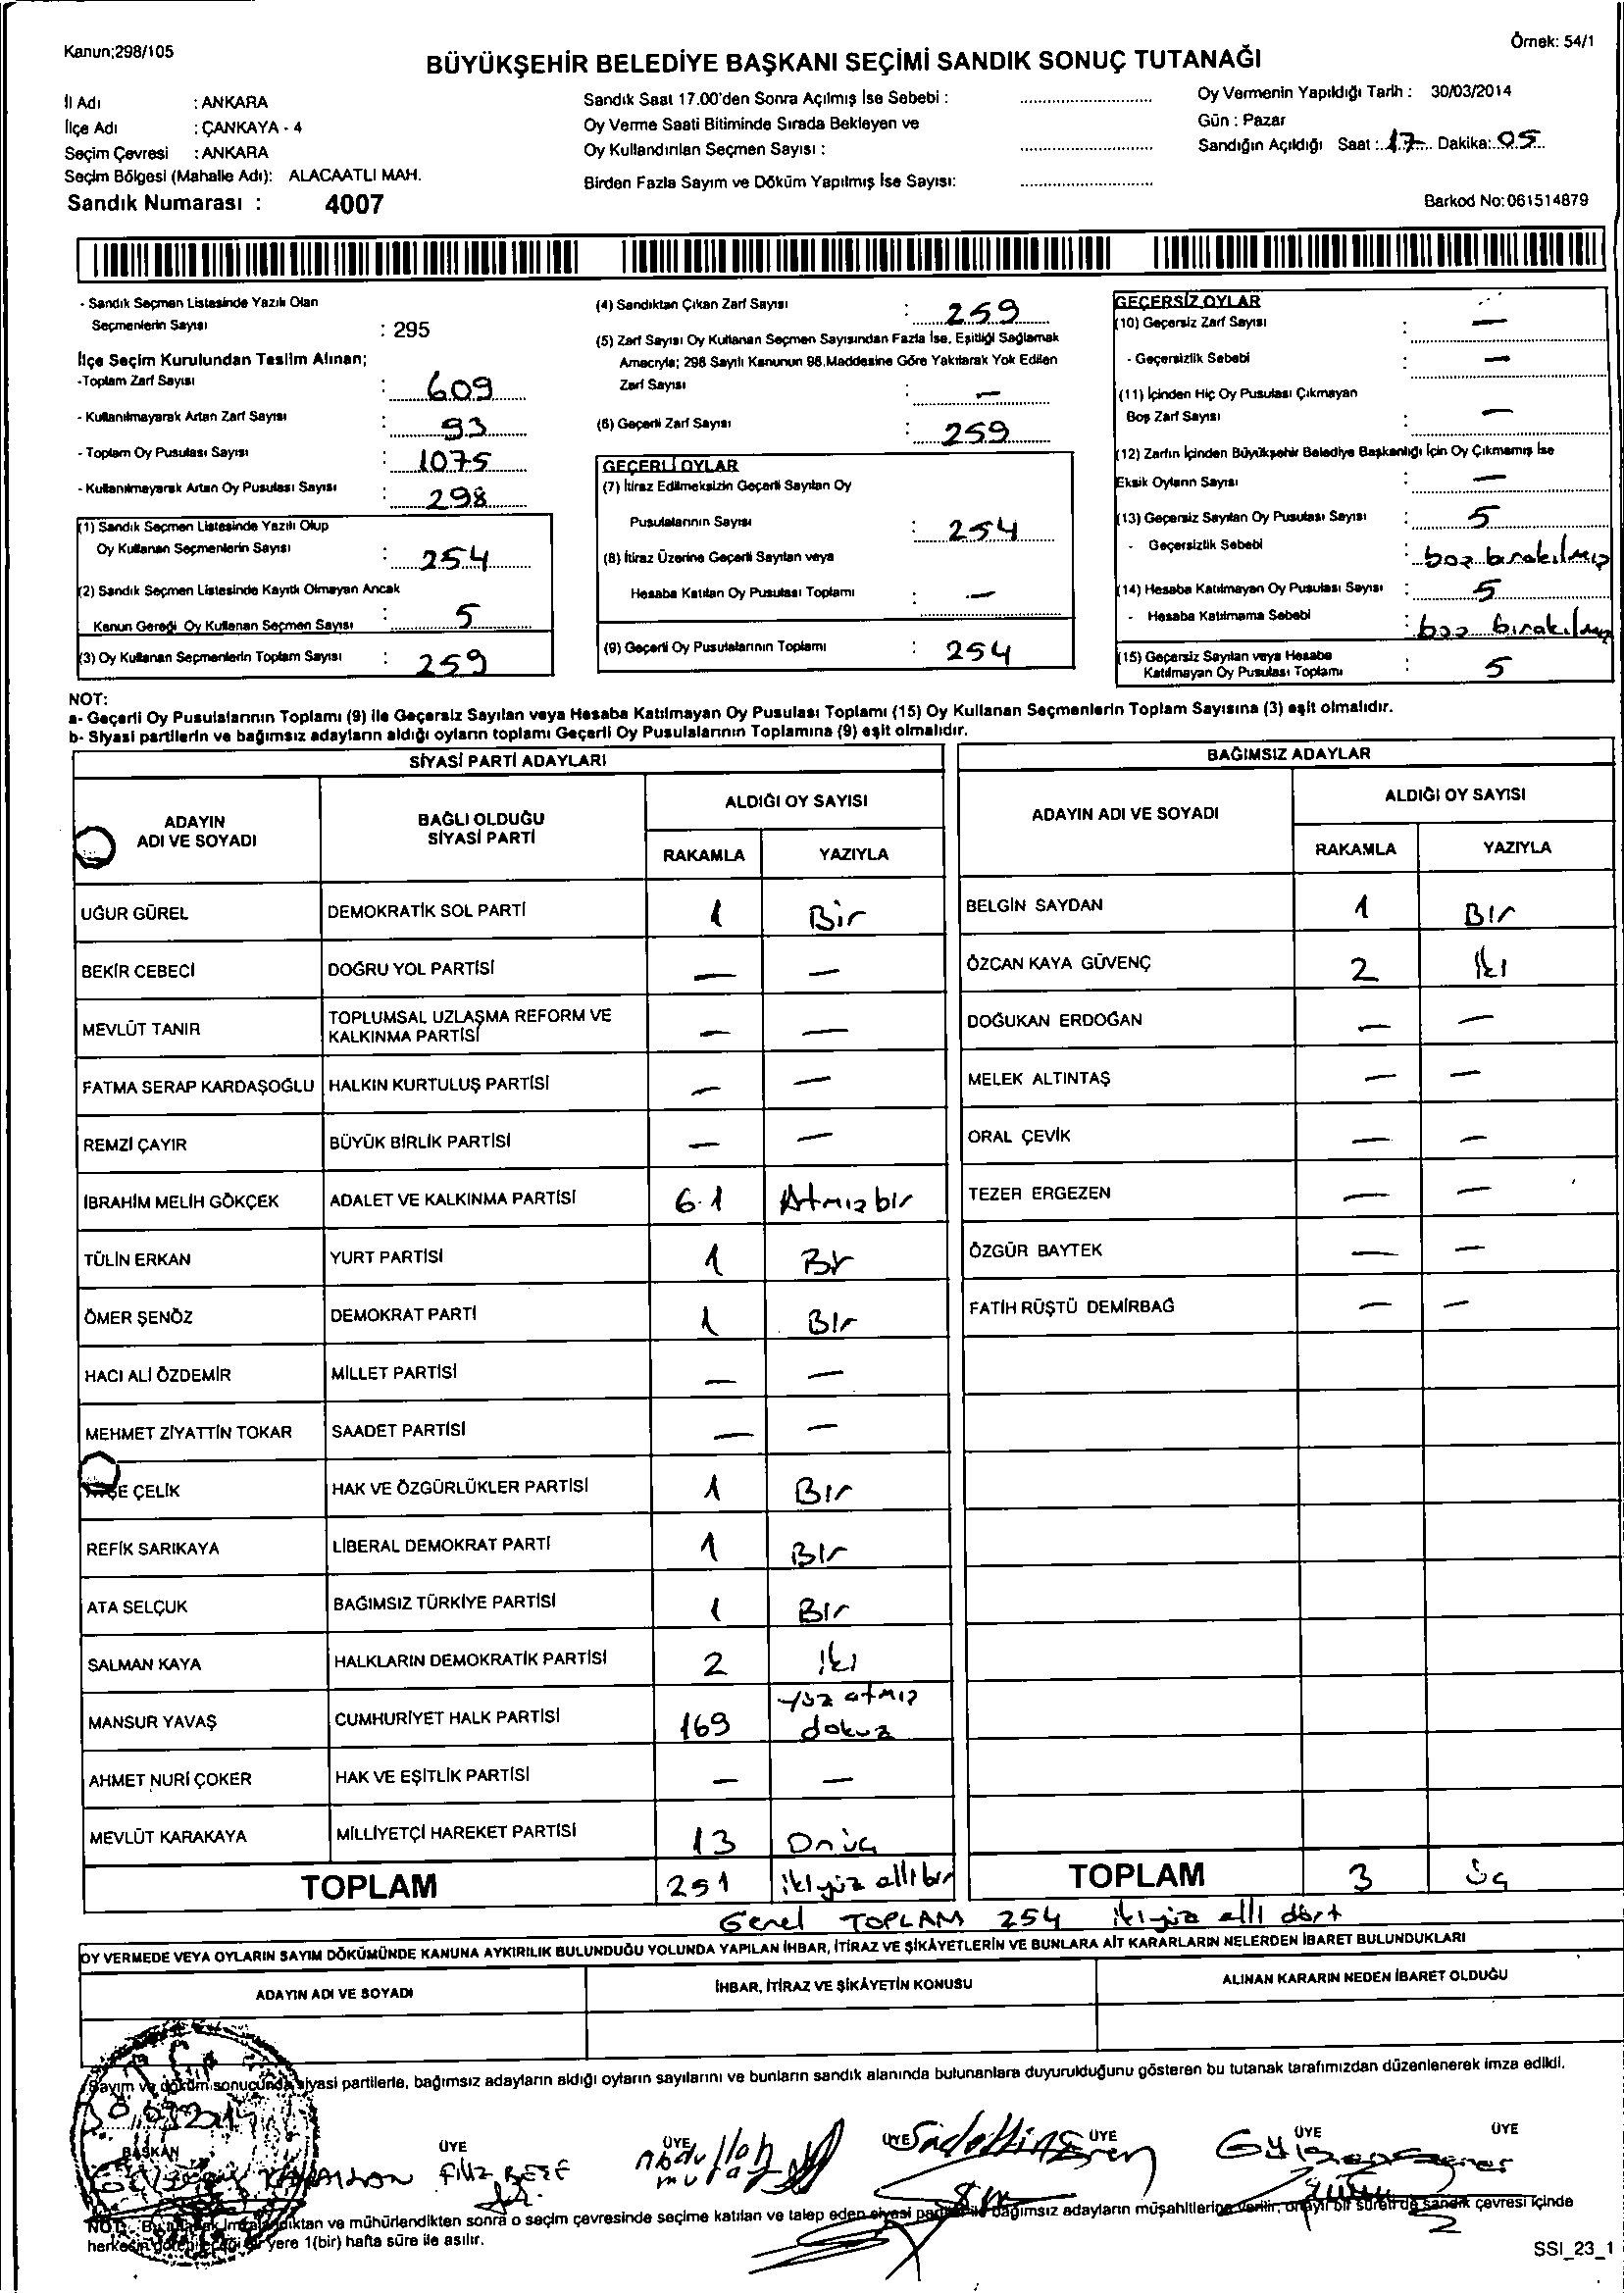 Kanun;298/105
Örnek: 54/1
BÜYÜKŞEHİR BELEDİYE BAŞKANI SEÇİMİ SANDIK SONUÇ TUTANAĞI
İl Adı : ANKARA
İlçe Adı : ÇANKAYA - 4
Seçim Çevresi : ANKARA
Seçim Bölgesi (Mahalle Adı): ALACAATLI MAH.
Sandık Numarası : 4007
Sandık Saat 17.00'den Sonra Açılmış İse Sebebi :
Oy Verme Saati Bitiminde Sırada Bekleyen ve
Oy Kullandırılan Seçmen Sayısı :
Birden Fazla Sayım ve Döküm Yapılmış İse Sayısı:
Oy Vermenin Yapıldığı Tarih : 30/03/2014
Gün : Pazar
Sandığın Açıldığı Saat : 17 Dakika: 05
Barkod No:061514879
- Sandık Seçmen Listesinde Yazılı Olan
Seçmenlerin Sayısı : 295
İlçe Seçim Kurulundan Teslim Alınan;
-Toplam Zarf Sayısı : 609
- Kullanılmayarak Artan Zarf Sayısı : 93
- Toplam Oy Pusulası Sayısı : 1075
- Kullanılmayarak Artan Oy Pusulası Sayısı : 298
(1) Sandık Seçmen Listesinde Yazılı Olup
Oy Kullanan Seçmenlerin Sayısı : 254
(2) Sandık Seçmen Listesinde Kayıtlı Olmayan Ancak
Kanun Gereği Oy Kullanan Seçmen Sayısı : 5
(3) Oy Kullanan Seçmenlerin Toplam Sayısı : 259
(4) Sandıktan Çıkan Zarf Sayısı : 259
(5) Zarf Sayısı Oy Kullanan Seçmen Sayısından Fazla İse, Eşitliği Sağlamak
Amacıyla; 298 Sayılı Kanunun 98.Maddesine Göre Yakılarak Yok Edilen
Zarf Sayısı : —
(6) Geçerli Zarf Sayısı : 259
GEÇERLİ OYLAR
(7) İtiraz Edilmeksizin Geçerli Sayılan Oy
Pusulalarının Sayısı : 254
(8) İtiraz Üzerine Geçerli Sayılan veya
Hesaba Katılan Oy Pusulası Toplamı : —
(9) Geçerli Oy Pusulalarının Toplamı : 254
GEÇERSİZ OYLAR
(10) Geçersiz Zarf Sayısı : —
- Geçersizlik Sebebi : —
(11) İçinden Hiç Oy Pusulası Çıkmayan
Boş Zarf Sayısı : —
(12) Zarfın İçinden Büyükşehir Belediye Başkanlığı İçin Oy Çıkmamış İse
Eksik Oyların Sayısı : —
(13) Geçersiz Sayılan Oy Pusulası Sayısı : 5
- Geçersizlik Sebebi : boş bırakılmış
(14) Hesaba Katılmayan Oy Pusulası Sayısı : 5
- Hesaba Katılmama Sebebi : boş bırakılmış
(15) Geçersiz Sayılan veya Hesaba
Katılmayan Oy Pusulası Toplamı : 5
NOT:
a- Geçerli Oy Pusulalarının Toplamı (9) ile Geçersiz Sayılan veya Hesaba Katılmayan Oy Pusulası Toplamı (15) Oy Kullanan Seçmenlerin Toplam Sayısına (3) eşit olmalıdır.
b- Siyasi partilerin ve bağımsız adayların aldığı oyların toplamı Geçerli Oy Pusulalarının Toplamına (9) eşit olmalıdır.
SİYASİ PARTİ ADAYLARI
ADAYIN ADI VE SOYADI
BAĞLI OLDUĞU SİYASİ PARTİ
ALDIĞI OY SAYISI
RAKAMLA YAZIYLA
UĞUR GÜREL DEMOKRATİK SOL PARTİ 1 Bir
BEKİR CEBECİ DOĞRU YOL PARTİSİ — —
MEVLÜT TANIR TOPLUMSAL UZLAŞMA REFORM VE KALKINMA PARTİSİ — —
FATMA SERAP KARDAŞOĞLU HALKIN KURTULUŞ PARTİSİ — —
REMZİ ÇAYIR BÜYÜK BİRLİK PARTİSİ — —
İBRAHİM MELİH GÖKÇEK ADALET VE KALKINMA PARTİSİ 61 Atmış bir
TÜLİN ERKAN YURT PARTİSİ 1 Bir
ÖMER ŞENÖZ DEMOKRAT PARTİ 1 Bir
HACI ALİ ÖZDEMİR MİLLET PARTİSİ — —
MEHMET ZİYATTİN TOKAR SAADET PARTİSİ — —
ÇELİK HAK VE ÖZGÜRLÜKLER PARTİSİ 1 Bir
REFİK SARIKAYA LİBERAL DEMOKRAT PARTİ 1 Bir
ATA SELÇUK BAĞIMSIZ TÜRKİYE PARTİSİ 1 Bir
SALMAN KAYA HALKLARIN DEMOKRATİK PARTİSİ 2 İki
MANSUR YAVAŞ CUMHURİYET HALK PARTİSİ 169 yüz atmış dokuz
AHMET NURİ ÇOKER HAK VE EŞİTLİK PARTİSİ — —
MEVLÜT KARAKAYA MİLLİYETÇİ HAREKET PARTİSİ 13 Onüç
TOPLAM 251 ikiyüz ellibir
BAĞIMSIZ ADAYLAR
ADAYIN ADI VE SOYADI
ALDIĞI OY SAYISI
RAKAMLA YAZIYLA
BELGİN SAYDAN 1 Bir
ÖZCAN KAYA GÜVENÇ 2 İki
DOĞUKAN ERDOĞAN — —
MELEK ALTINTAŞ — —
ORAL ÇEVİK — —
TEZER ERGEZEN — —
ÖZGÜR BAYTEK — —
FATİH RÜŞTÜ DEMİRBAĞ — —
TOPLAM 3 üç
Genel TOPLAM 254 ikiyüz elli dört
OY VERMEDE VEYA OYLARIN SAYIM DÖKÜMÜNDE KANUNA AYKIRILIK BULUNDUĞU YOLUNDA YAPILAN İHBAR, İTİRAZ VE ŞİKÂYETLERİN VE BUNLARA AİT KARARLARIN NELERDEN İBARET BULUNDUKLARI
ADAYIN ADI VE SOYADI İHBAR, İTİRAZ VE ŞİKÂYETİN KONUSU ALINAN KARARIN NEDEN İBARET OLDUĞU
Sayım ve döküm sonucunda siyasi partilerle, bağımsız adayların aldığı oyların sayılarını ve bunların sandık alanında bulunanlara duyurulduğunu gösteren bu tutanak tarafımızdan düzenlenerek imza edildi.
BAŞKAN ÜYE ÜYE ÜYE ÜYE ÜYE ÜYE
Filiz Abdullah Sadettin Eren
NOT: Bu tutanak imzalandıktan ve mühürlendikten sonra o seçim çevresinde seçime katılan ve talep eden siyasi partiler ile bağımsız adayların müşahitlerine verilir, onaylı bir sureti de sandık çevresi içinde
herkesin görebileceği bir yere 1(bir) hafta süre ile asılır.
SSI_23_1